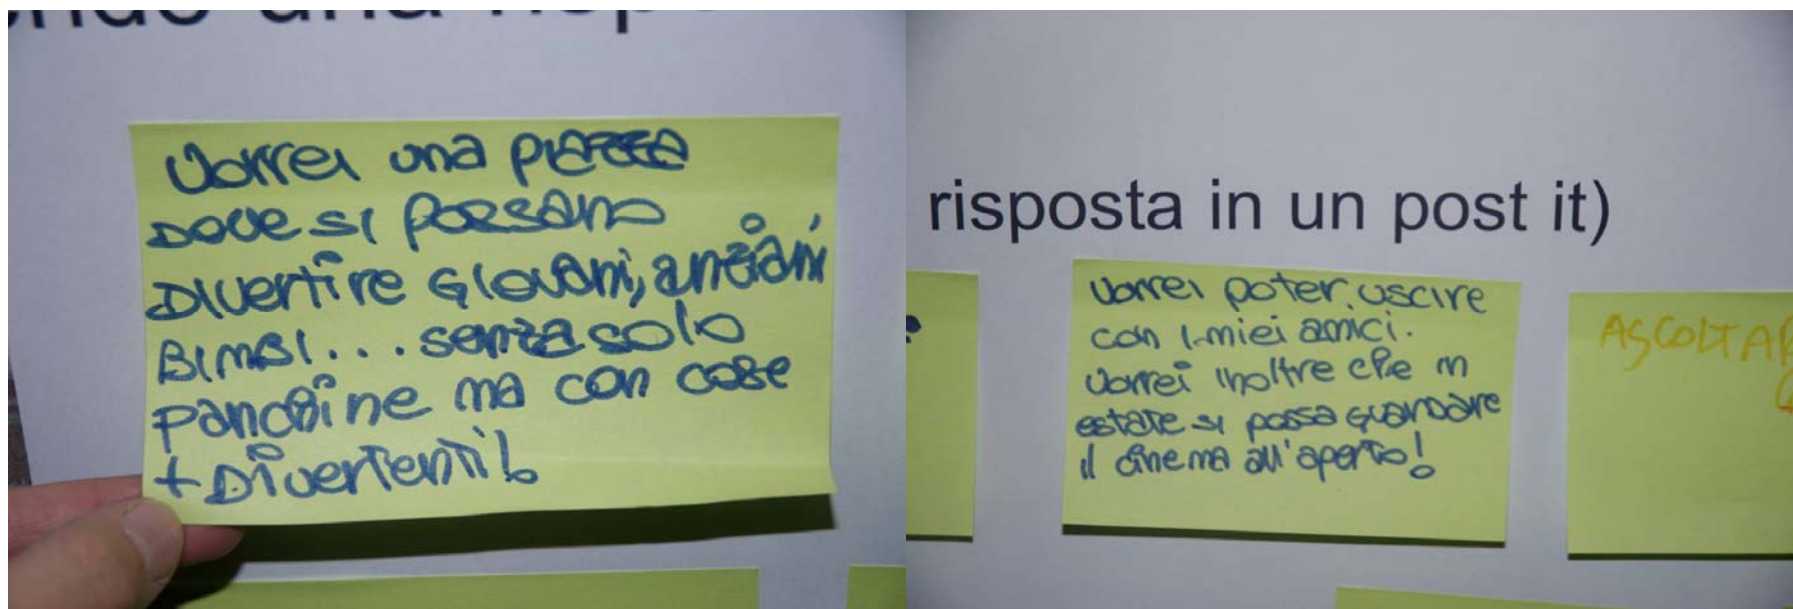 Vorrei una piazza
DOVE SI POSSANO
DIVERTIRE GIOVANI, anziani
BIMBI... senza solo
panchine ma con cose
+ DIVERTENTI!
risposta in un post it)
Vorrei poter uscire
con i miei amici.
Vorrei inoltre che in
estate si possa guardare
il cinema all'aperto!